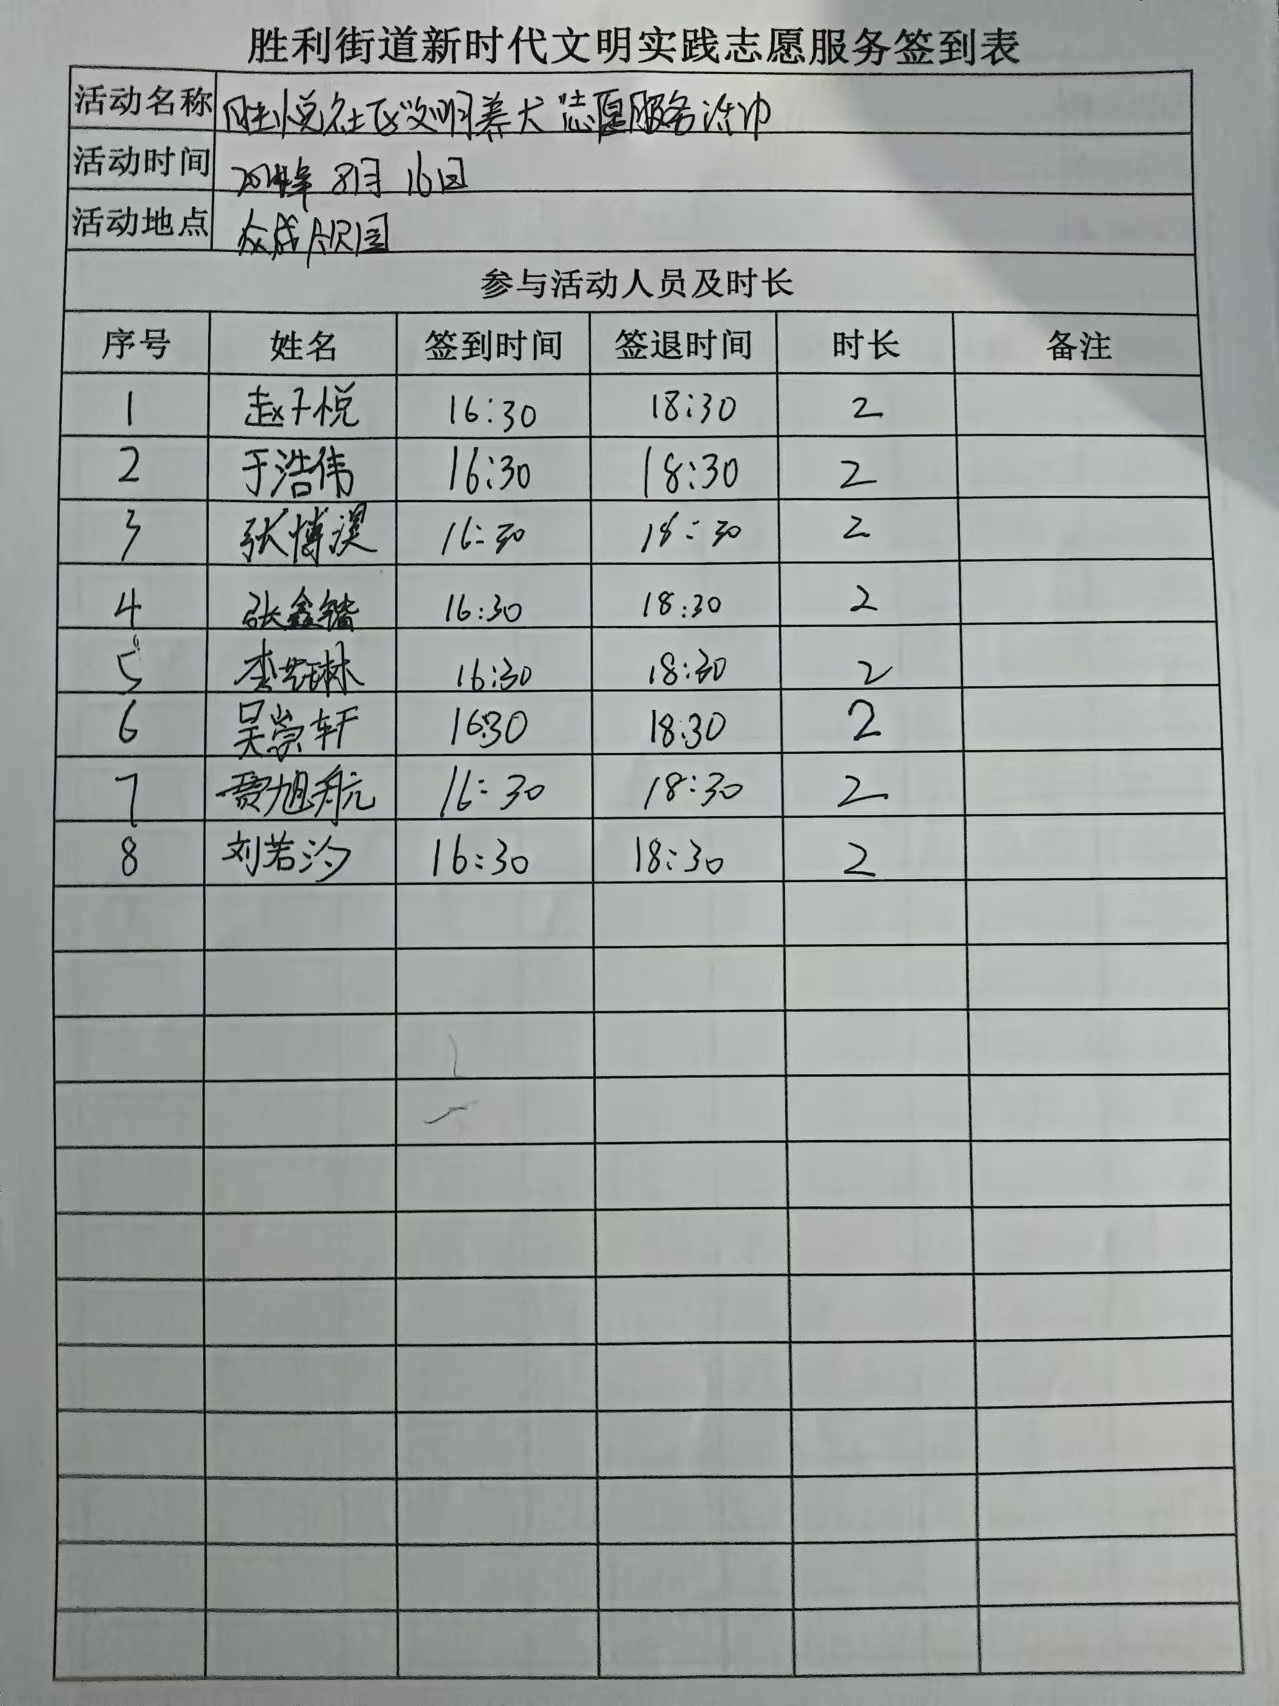 胜利街道新时代文明实践志愿服务签到表
活动名称 胜悦社区文明养犬志愿服务活动
活动时间 2024年8月16日
活动地点 众成颐园
参与活动人员及时长
序号 姓名 签到时间 签退时间 时长 备注
1 赵子悦 16:30 18:30 2
2 于浩伟 16:30 18:30 2
3 张博淏 16:30 18:30 2
4 张鑫锴 16:30 18:30 2
5 李琳 16:30 18:30 2
6 吴崇轩 1630 18:30 2
7 贾旭航 16:30 18:30 2
8 刘若汐 16:30 18:30 2